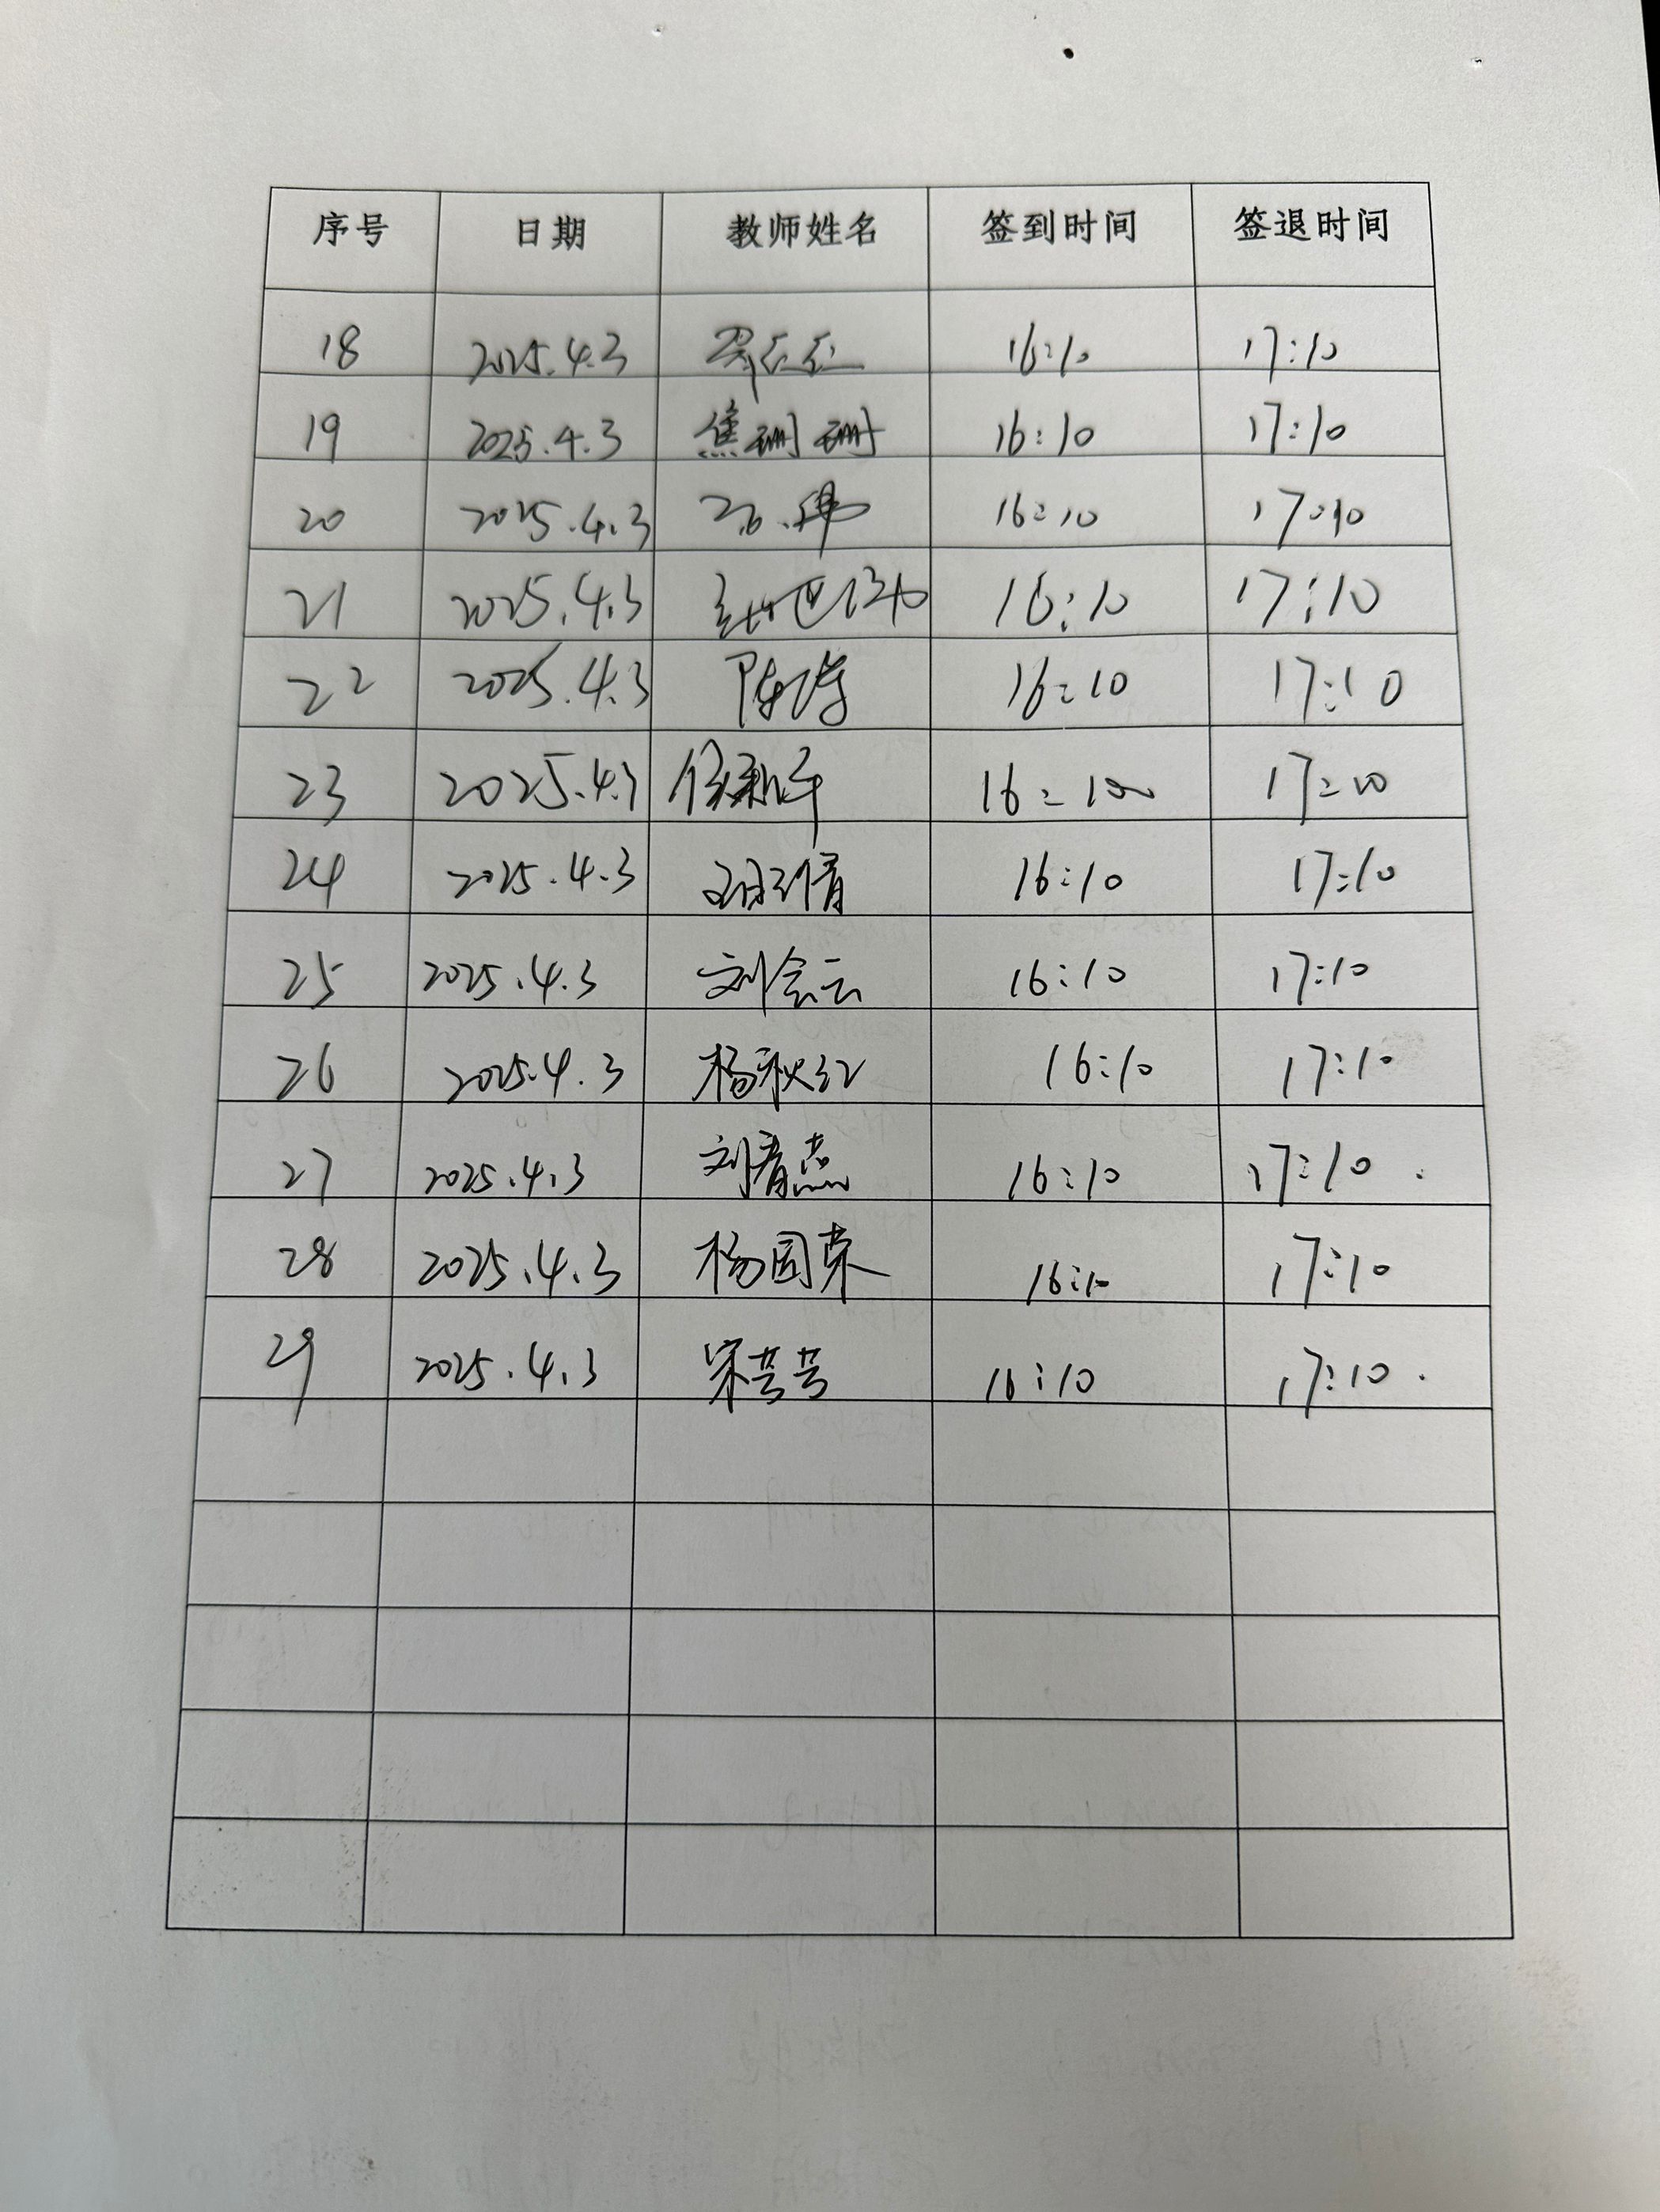 序号 日期 教师姓名 签到时间 签退时间
18 2025.4.3 16:10 17:10
19 2025.4.3 焦珊珊 16:10 17:10
20 2025.4.3 16:10 17:10
21 2025.4.3 16:10 17:10
22 2025.4.3 陈涛 16:10 17:10
23 2025.4.3 16:10 17:10
24 2025.4.3 16:10 17:10
25 2025.4.3 刘会云 16:10 17:10
26 2025.4.3 杨秋红 16:10 17:10
27 2025.4.3 刘春燕 16:10 17:10
28 2025.4.3 杨国荣 16:10 17:10
29 2025.4.3 宋芸芸 16:10 17:10